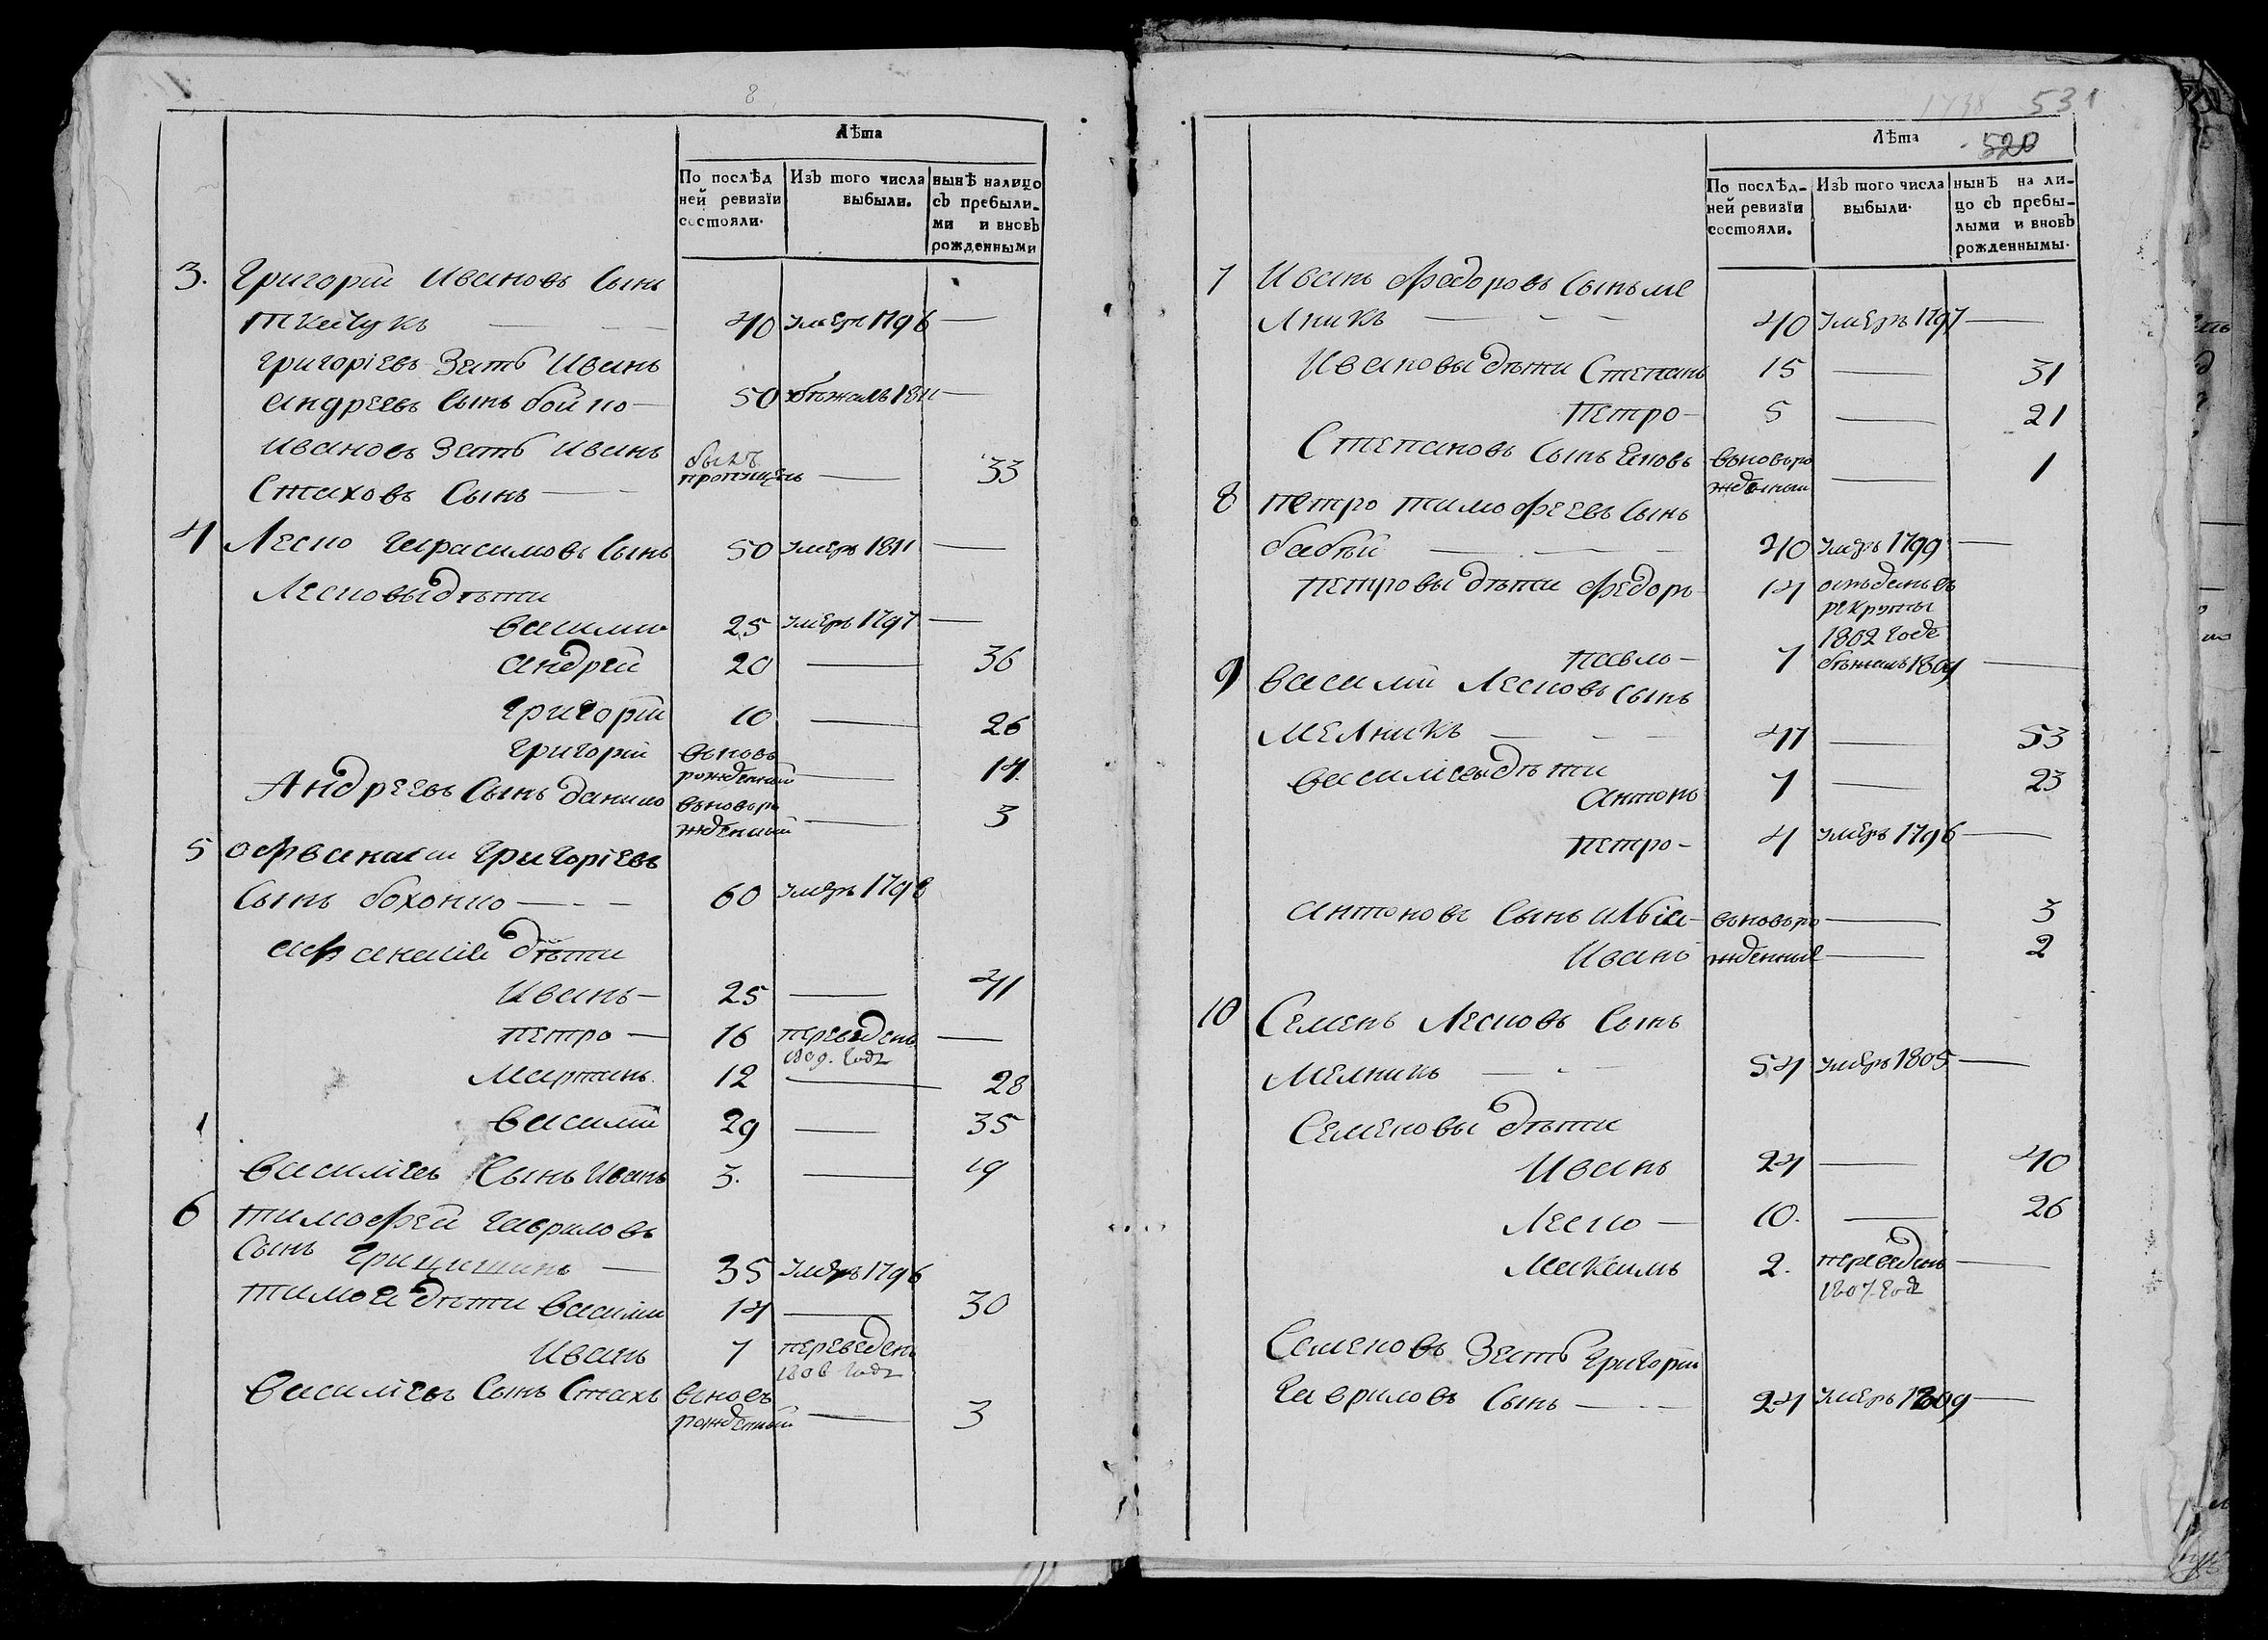 8
Лѣта
По послѣд ней ревизїи состояли.
Изъ того числа выбыли.
нынѣ налицо съ пребыли-ми и вновь рожденными
3. Григорій Ивановъ Сынъ
Ткачукъ — 40 умеръ 1796 —
Григоріевъ Зать Иванъ
Андреевъ Сынъ бойко — 50 бѣжалъ 1811 —
Ивановъ Зать Иванъ
Стаховъ Сынъ — былъ пропущенъ — 33
4 Леско Герасимовъ Сынъ 50 умеръ 1811 —
Лесковы дѣти
Василий 25 умеръ 1797 —
Андрей 20 — 36
Григорій 10 — 26
Григорій вьновь рожденный — 14.
Андреевъ Сынъ Данило вьноворо жденный — 3
5 Афанасій Григоріевъ
Сынъ — 60 умеръ 1798
дѣти
Иванъ — 25 — 41
Петро — 16 переведенъ 1809. Года —
Мартинъ 12 — 28
Василій 29 — 35
Василіевъ Сынъ Иванъ 3. — 19
6 Тимофей Гавриловъ
Сынъ Грицишинъ — 35 умеръ 1796
дѣти Василий 14 — 30
Иванъ 7 переведенъ 1806 Года
Василіевъ Сынъ Стахъ вьновь рожденный — 3
1738 531
520
Лѣта
По послѣд-ней ревизїи состояли.
Изъ того числа выбыли.
нынѣ на ли-цо съ пребы-лыми и вновь рожденными.
7 Иванъ Федоровъ Сынъ ме
лникъ — 40 умеръ 1797 —
Ивановы дѣти Степанъ 15 — 31
Петро — 5 — 21
Степановъ Сынъ Яковъ вьноворо жденный — 1
8 Петро Тимофеевъ Сынъ
бабій — 40 умеръ 1799 —
Петровы дѣти Федоръ 14 отъданъ въ рекруты 1802 Годе
Павло — 7 бѣжалъ 1809 —
9 Василій Лесковъ Сынъ
Мелникъ — 47 — 53
Василіевы дѣти
Антонъ 7 — 23
Петро — 4 умеръ 1796 —
Антоновъ Сынъ Илья — вьноворо — 3
Иванъ жденные — 2
10 Семенъ Лесковъ Сынъ
Мелникъ — 54 умеръ 1805 —
Семеновы дѣти
Иванъ 24 — 40
Леско — 10. — 26
Максимъ 2. переведенъ 1807. Года —
Семеновъ Зать Григорій
Гавриловъ Сынъ — 24 умеръ 1809 —